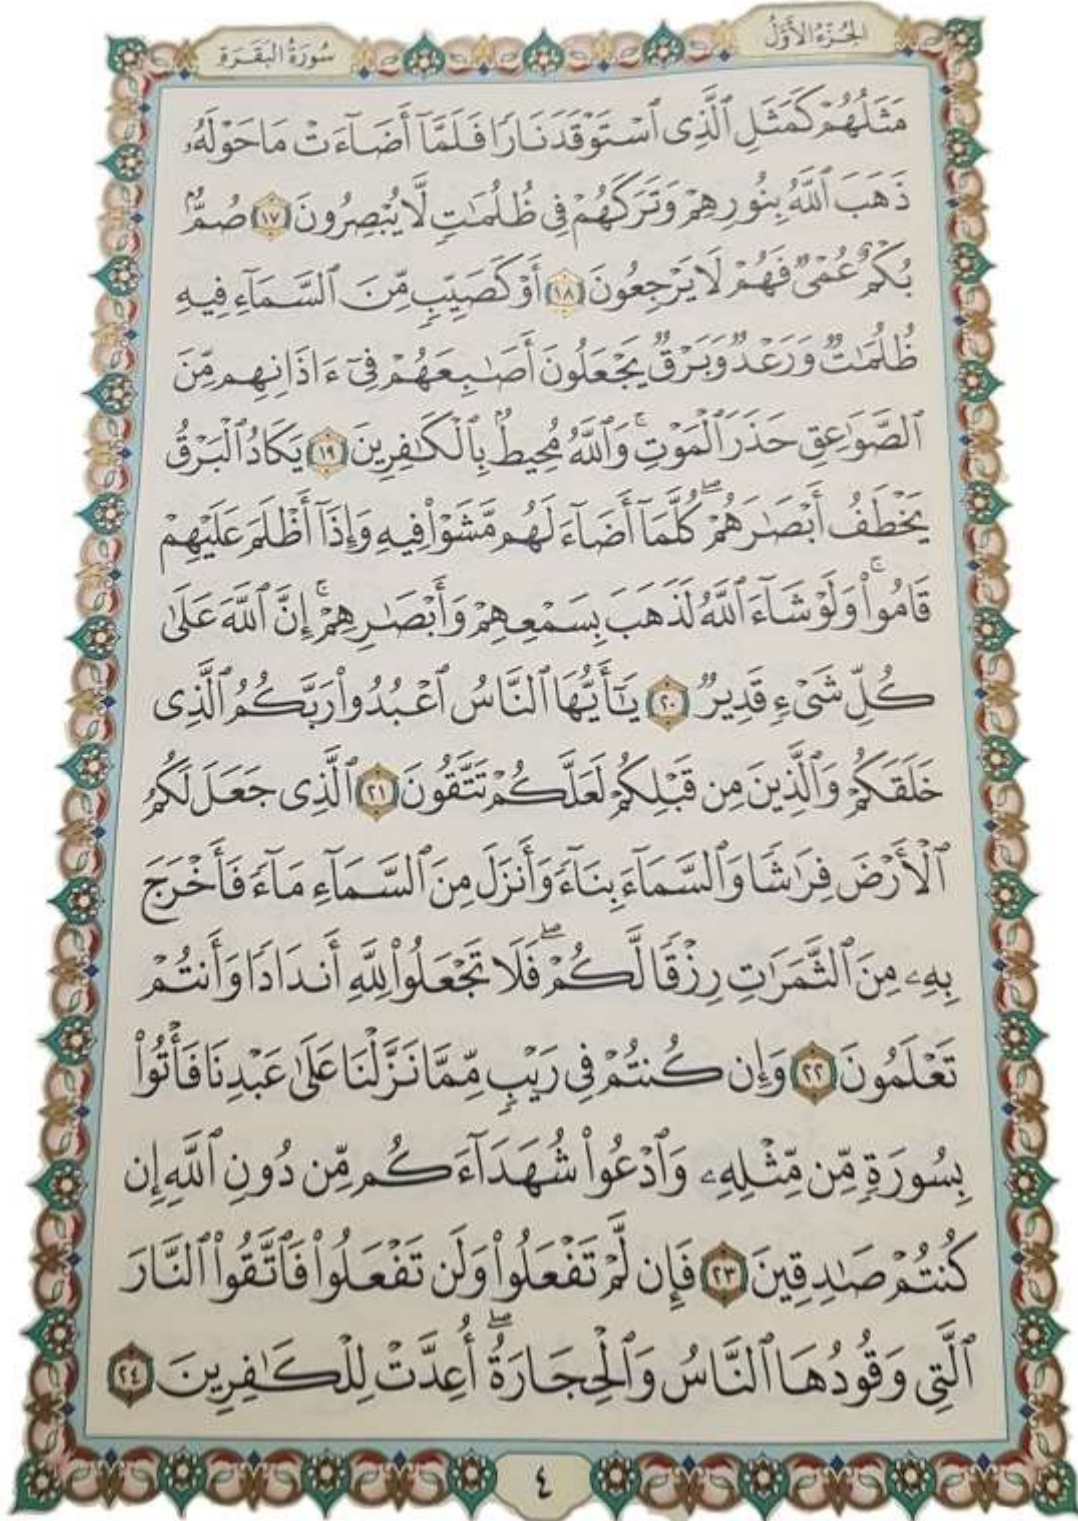 الجُزْءُ الأَوَّلُ
سُورَةُ البَقَرَةِ
مَثَلُهُمْ كَمَثَلِ ٱلَّذِى ٱسْتَوْقَدَ نَارًا فَلَمَّآ أَضَآءَتْ مَا حَوْلَهُۥ
ذَهَبَ ٱللَّهُ بِنُورِهِمْ وَتَرَكَهُمْ فِى ظُلُمَٰتٍ لَّا يُبْصِرُونَ ١٧ صُمٌّۢ
بُكْمٌ عُمْىٌ فَهُمْ لَا يَرْجِعُونَ ١٨ أَوْ كَصَيِّبٍ مِّنَ ٱلسَّمَآءِ فِيهِ
ظُلُمَٰتٌ وَرَعْدٌ وَبَرْقٌ يَجْعَلُونَ أَصَٰبِعَهُمْ فِىٓ ءَاذَانِهِم مِّنَ
ٱلصَّوَٰعِقِ حَذَرَ ٱلْمَوْتِ ۚ وَٱللَّهُ مُحِيطٌۢ بِٱلْكَٰفِرِينَ ١٩ يَكَادُ ٱلْبَرْقُ
يَخْطَفُ أَبْصَٰرَهُمْ ۖ كُلَّمَآ أَضَآءَ لَهُم مَّشَوْا۟ فِيهِ وَإِذَآ أَظْلَمَ عَلَيْهِمْ
قَامُوا۟ ۚ وَلَوْ شَآءَ ٱللَّهُ لَذَهَبَ بِسَمْعِهِمْ وَأَبْصَٰرِهِمْ ۚ إِنَّ ٱللَّهَ عَلَىٰ
كُلِّ شَىْءٍ قَدِيرٌ ٢٠ يَٰٓأَيُّهَا ٱلنَّاسُ ٱعْبُدُوا۟ رَبَّكُمُ ٱلَّذِى
خَلَقَكُمْ وَٱلَّذِينَ مِن قَبْلِكُمْ لَعَلَّكُمْ تَتَّقُونَ ٢١ ٱلَّذِى جَعَلَ لَكُمُ
ٱلْأَرْضَ فِرَٰشًا وَٱلسَّمَآءَ بِنَآءً وَأَنزَلَ مِنَ ٱلسَّمَآءِ مَآءً فَأَخْرَجَ
بِهِۦ مِنَ ٱلثَّمَرَٰتِ رِزْقًا لَّكُمْ ۖ فَلَا تَجْعَلُوا۟ لِلَّهِ أَندَادًا وَأَنتُمْ
تَعْلَمُونَ ٢٢ وَإِن كُنتُمْ فِى رَيْبٍ مِّمَّا نَزَّلْنَا عَلَىٰ عَبْدِنَا فَأْتُوا۟
بِسُورَةٍ مِّن مِّثْلِهِۦ وَٱدْعُوا۟ شُهَدَآءَكُم مِّن دُونِ ٱللَّهِ إِن
كُنتُمْ صَٰدِقِينَ ٢٣ فَإِن لَّمْ تَفْعَلُوا۟ وَلَن تَفْعَلُوا۟ فَٱتَّقُوا۟ ٱلنَّارَ
ٱلَّتِى وَقُودُهَا ٱلنَّاسُ وَٱلْحِجَارَةُ ۖ أُعِدَّتْ لِلْكَٰفِرِينَ ٢٤
٤